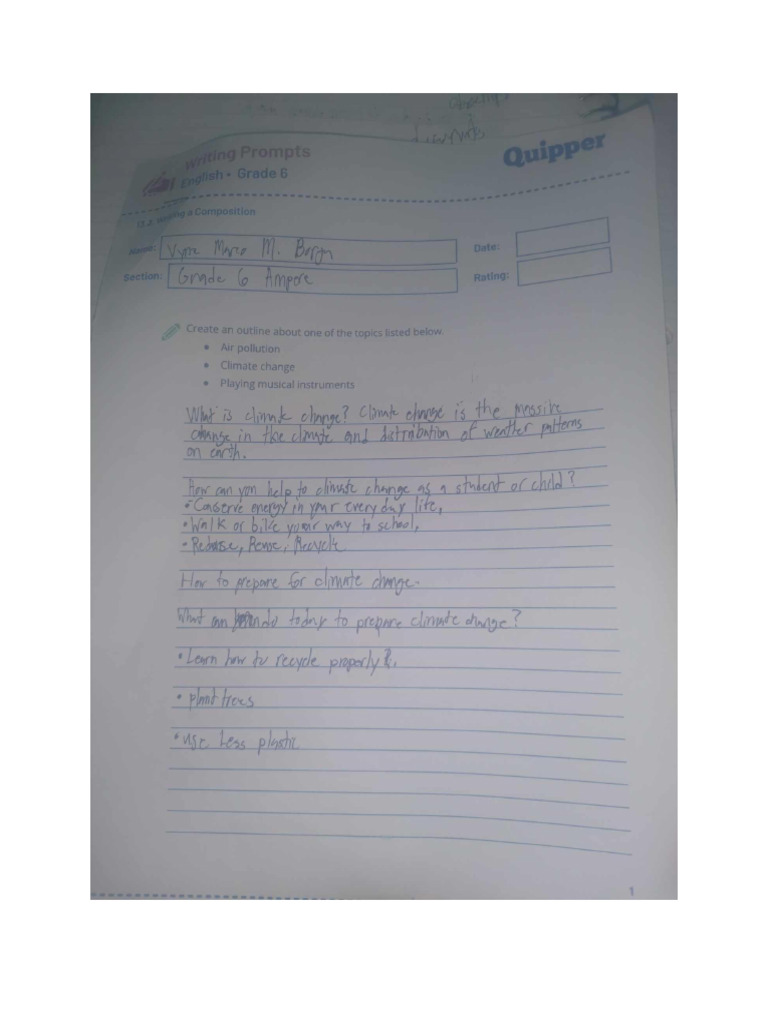 Writing Prompts
Quipper
English • Grade 6
Writing a Composition
Name: Marco M.
Date:
Section: Grade 6 Ampere
Rating:
Create an outline about one of the topics listed below.
• Air pollution
• Climate change
• Playing musical instruments
What is climate change? Climate change is the massive
change in the climate and distribution of weather patterns
on earth.
How can you help to climate change as a student or child?
• Conserve energy in your everyday life,
• Walk or bike your way to school,
• Reduse, Reuse, Recycle
How to prepare for climate change.
What can do today to prepare climate change?
• Learn how to recycle properly
• plant trees
• use Less plastic
1